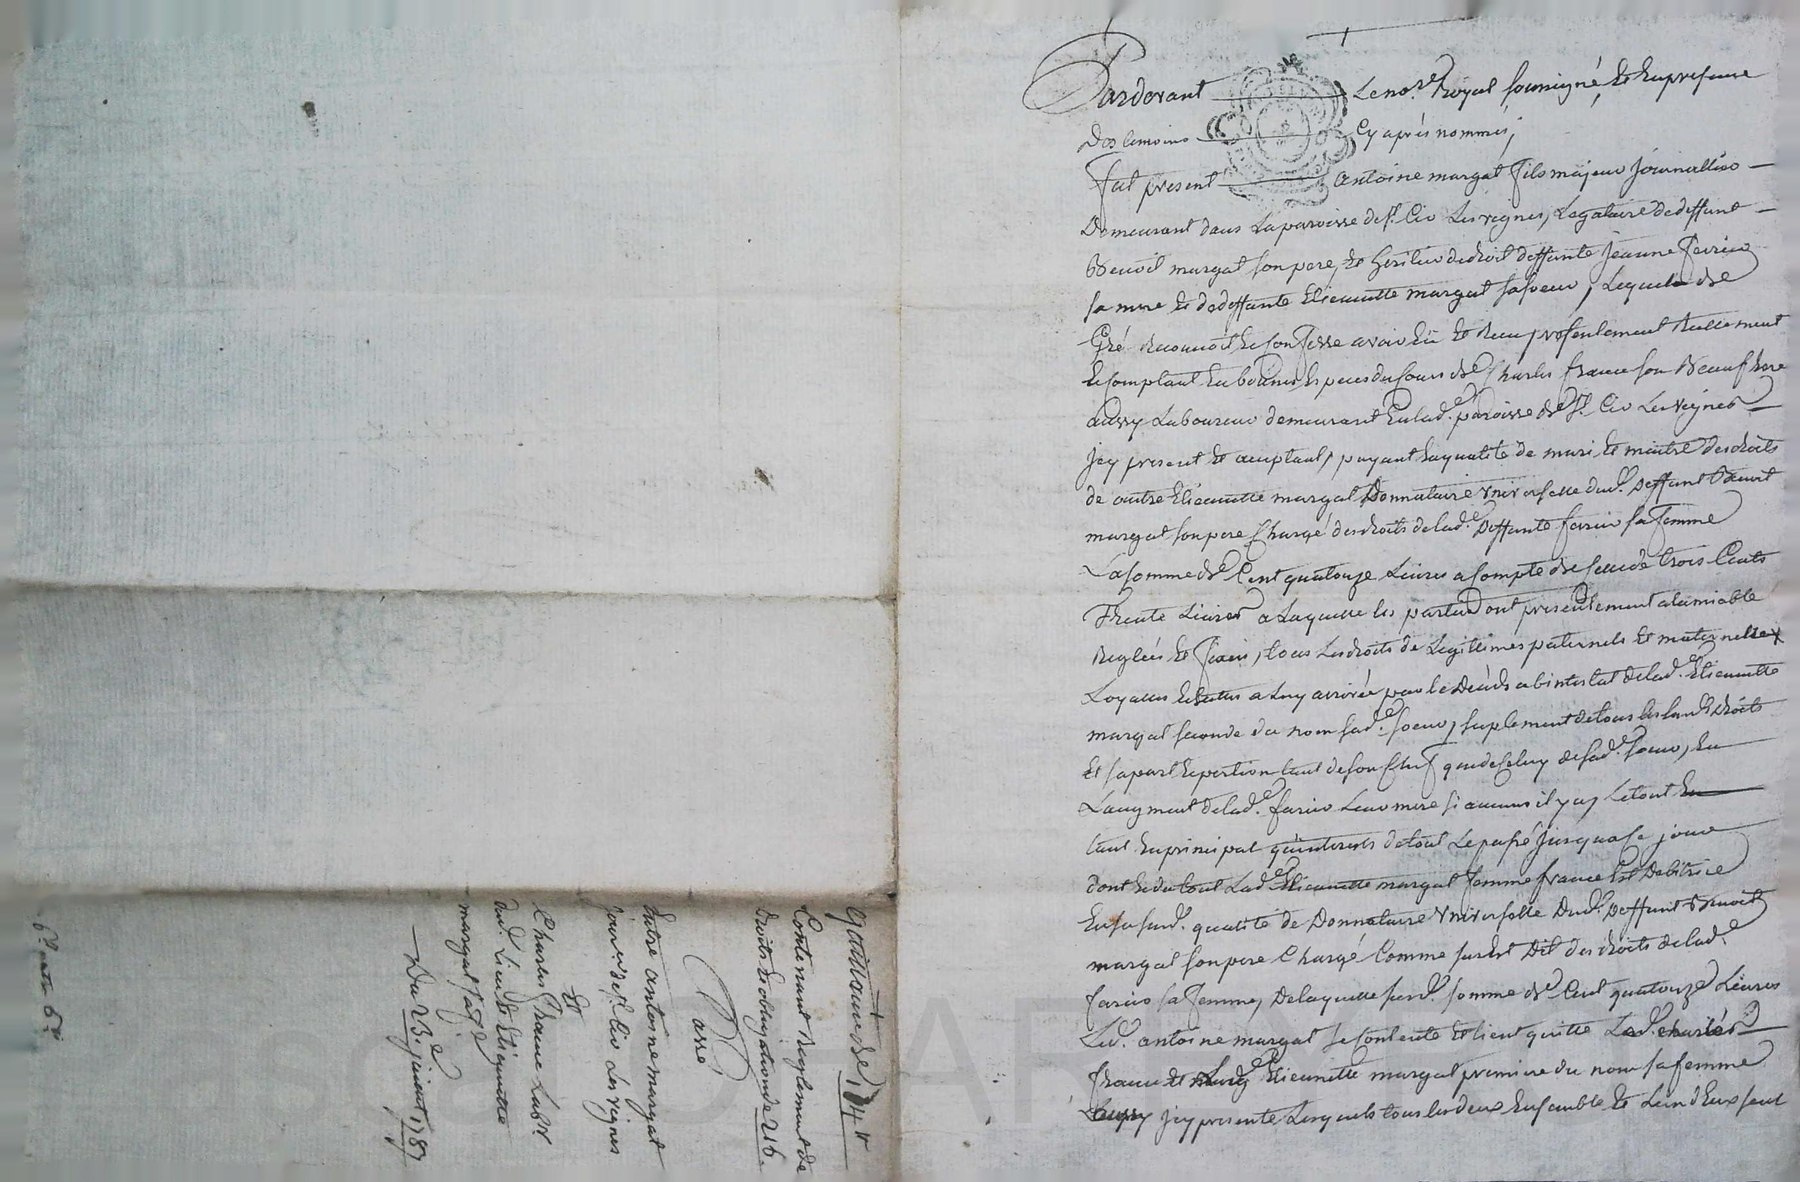 Pardevant Le no.re Royal soussigné, Et En presance
Des temoins Cy après nommés;
Fut present Antoine margat fils majeur journallier
Demeurant dans La paroisse de S.t Cir Les vignes, Legataire de deffunt
Benoit margat son pere, Et heritier de droit deffunte Jeanne ferrier
sa mere Et de deffunte Etiennette margat sa soeur, Lequel de
Gré reconnoit Et Confesse avoir Eü Et Receu presentement Reellement
Et Comptant En bonnes Especes du Cours de Charles france son Beaufrere
aussy Laboureur demeurant En lad.e paroisse de S.t Cir Les vignes
jcy present Et acceptant, payant En qualité de mari Et maitre des droits
de autre Etiennette margat Donnataire Universelle dud.t Deffunt Benoit
margat son pere Chargé des droits de lad.e Deffunte ferrier sa femme
La somme de Cent quatorze Livres a Compte de Celle de trois Cents
Trente Livres a Laquelle les parties ont presentement a lamiable
Reglées Et fixées, tous Les droits de Legitimes paternels Et maternelles
Loyaux Echutes a Luy arrivée par le Décès abintestat de lad.e Etiennette
margat seconde du nom sad.e soeur, suplement de tous les susd.ts droits
Et sa part Et portion tant de son Chef que de Celuy de sad.e soeur, En
Laugment de lad.e ferrier Leur mere si aucuns il y a, Le tout En
tant En principal qu'interets de tout Le passé jusqua Ce jour
dont Et du tout Lad.e Etiennette margat femme france Est Debitrice
En sa susd.e qualité de Donnataire Universelle Dud.t Deffunt Benoit
margat son pere Chargé Comme sus Est Dit des droits de lad.e
ferrier sa femme, De laquelle susd.e somme de Cent quatorze Livres
Led.t antoine margat se Contente Et tient quitte Led.t Charles
france Et Etiennette margat premiere du nom sa femme
aussy jcy presente Lesquels tous les deux Ensemble Et Lun dEux seul
quittance de 114#
Contenant Reglement de
droits Et obligation de 216.
Passé
Entre antoine margat
jour.er de S.t Cir Les vignes
Et
Charles france Lab.r
dud.t Lieu Et Etiennette
margat sa fe
Du 23.e juillet 1787